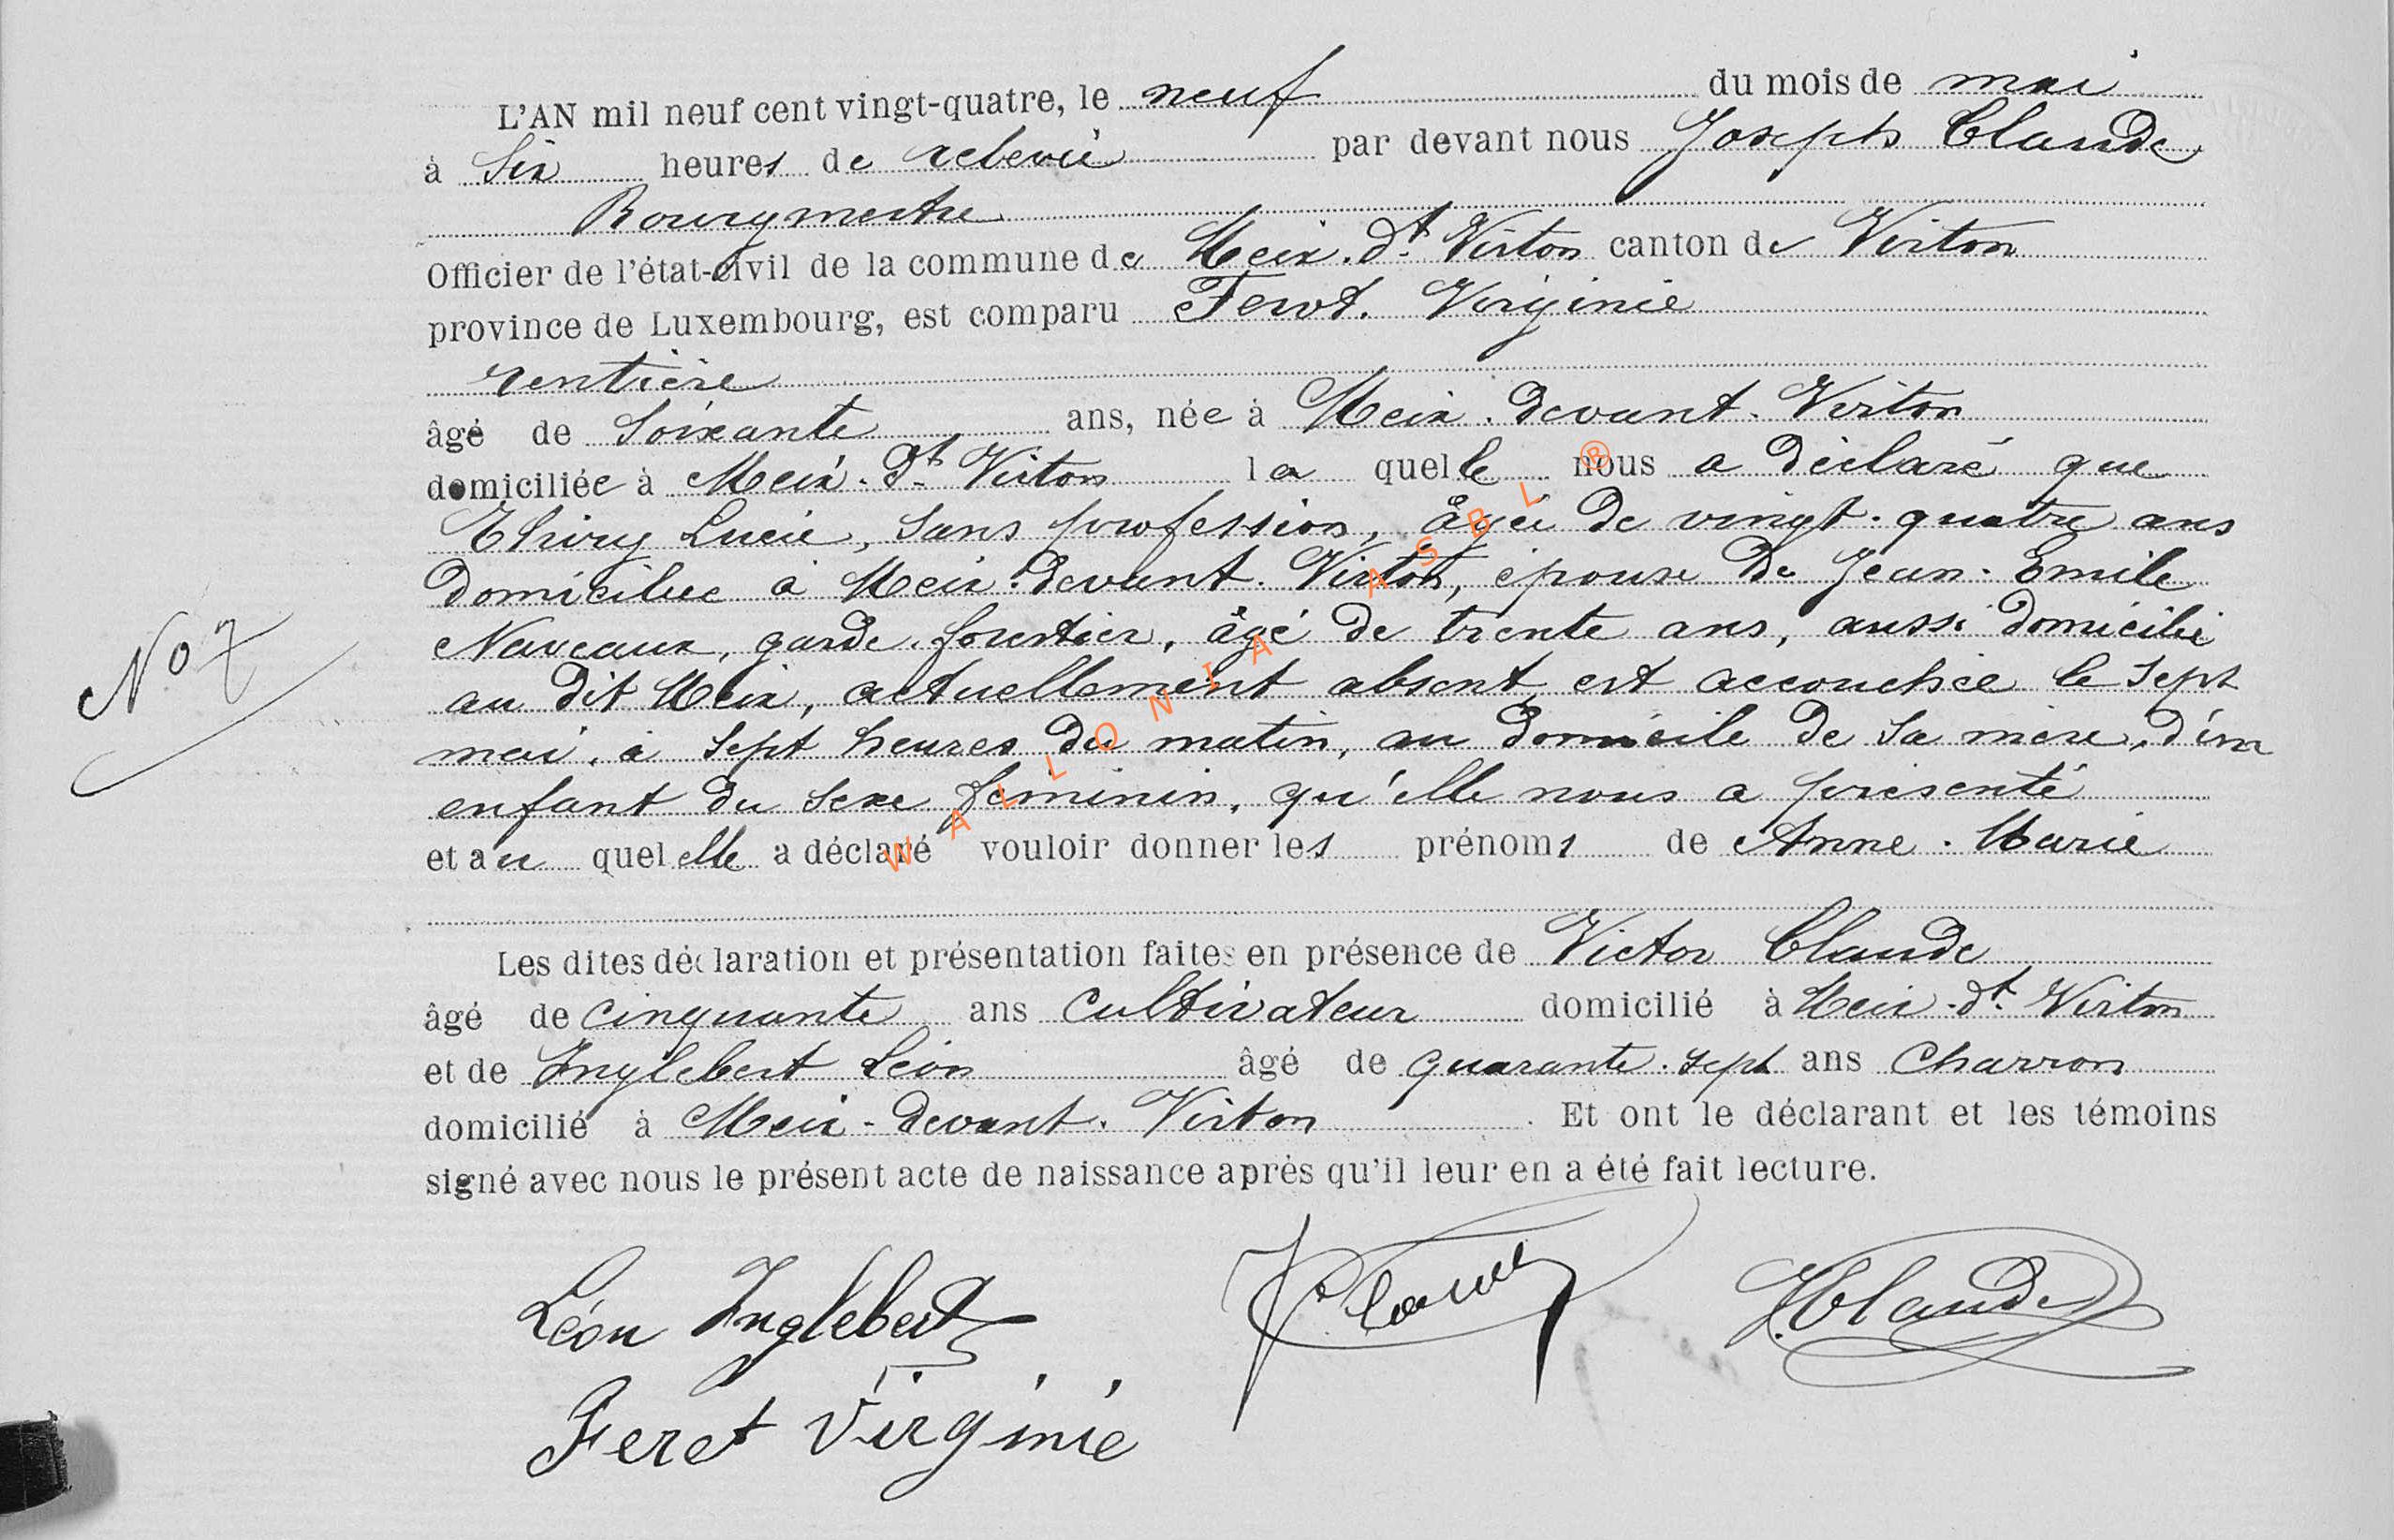 L'AN mil neuf cent vingt-quatre, le neuf du mois de mai
à Six heures de relevée par devant nous Joseph Claude
Bourgmestre
Officier de l'état-civil de la commune de Meix-dt Virton canton de Virton
province de Luxembourg, est comparu Feret. Virginie
rentière
âgé de soixante ans, née à Meix-devant-Virton
domiciliée à Meix-dt Virton laquelle nous a déclaré que
Thiry Lucie, sans profession, âgée de vingt-quatre ans
domiciliée à Meix-devant-Virton, épouse de Jean-Emile
Naveaux, garde forestier, âgé de trente ans, aussi domicilié
au dit Meix, actuellement absent, est accouchée le sept
mai, à sept heures du matin, au domicile de sa mère, d'un
enfant du sexe féminin, qu'elle nous a présenté
et au quel elle a déclaré vouloir donner les prénoms de Anne-Marie
No 7
Les dites déclaration et présentation faites en présence de Victor Claude
âgé de cinquante ans cultivateur domicilié à Meix-dt Virton
et de Inglebert Léon âgé de quarante-sept ans Charron
domicilié à Meix-devant-Virton. Et ont le déclarant et les témoins
signé avec nous le présent acte de naissance après qu'il leur en a été fait lecture.
Léon Inglebert V Claude J. Claude
Feret Virginie
WALLONIA ASBL ®